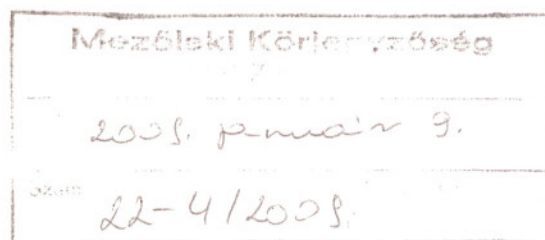 Mezőlaki Körjegyzőség
2009. január 9.
szám
22-4/2009.